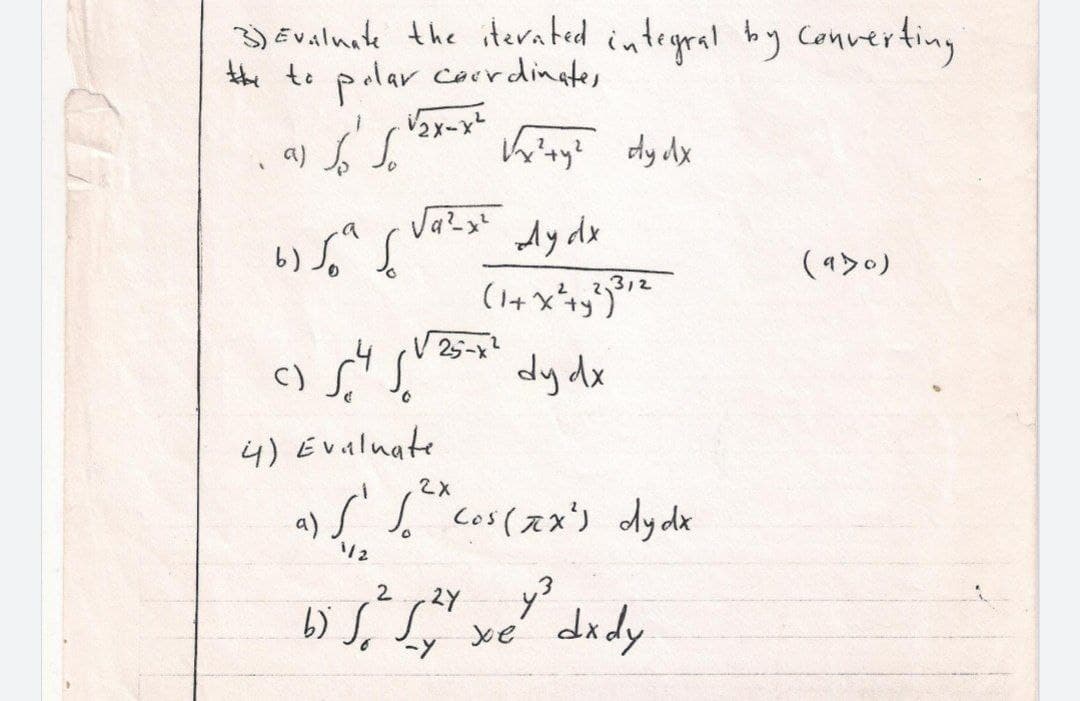 3) Evaluate the iterated integral by converting
the to polar coordinates
a) ∫₀¹ ∫₀^√(2x-x²) √(x²+y²) dy dx
b) ∫₀ᵃ ∫₀^√(a²-x²) dy dx / (1+x²+y²)^3/2 (a>0)
c) ∫₀⁴ ∫₀^√(25-x²) dy dx
4) Evaluate
a) ∫_1/2^1 ∫₀^2x cos(πx²) dy dx
b) ∫₀² ∫_-y^2y x e^y³ dx dy